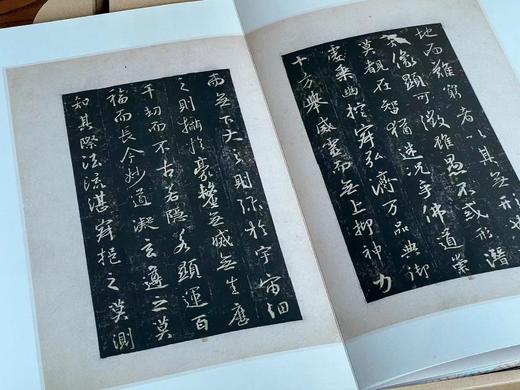 地而難窮者以其無形也
像顯可徵雖愚不惑形潛
莫覩在智猶迷況乎佛道崇
虛乘幽控寂弘濟万品典御
十方舉威靈而無上抑神力
而無下大之則彌於宇宙細
之則攝於豪釐無滅無生歷
千劫而不古若隱若顯運百
福而長今妙道凝玄遵之莫
知其際法流湛寂挹之莫測